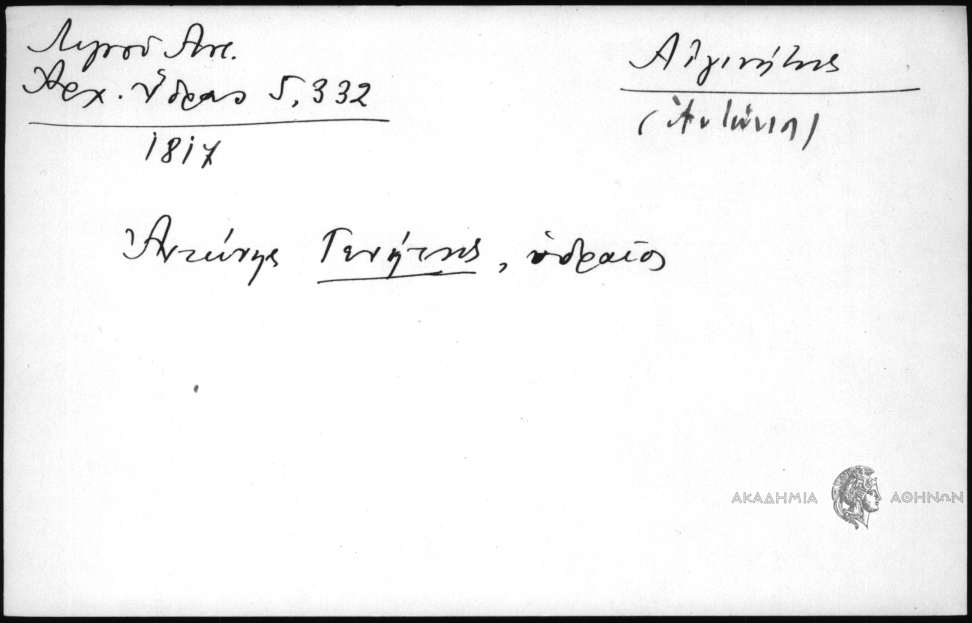 Λιγνοῦ Ἀντ.
Ἀρχ. Ὕδρας 5, 332
1817
Αἰγινήτης
(Ἀντώνιος)
Ἀντώνης Γενήτης, ὑδραῖος
ΑΚΑΔΗΜΙΑ ΑΘΗΝΩΝ